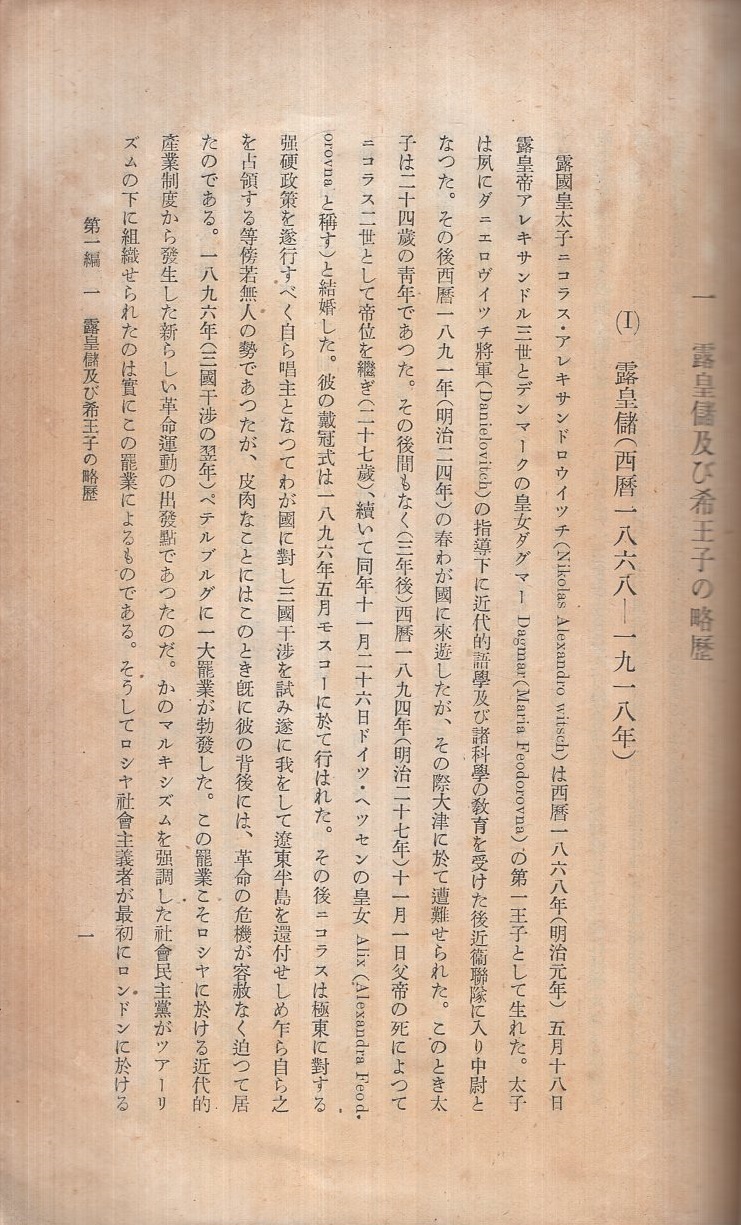 一　露皇儲及び希王子の略歴
(I)　露皇儲(西曆一八六八―一九一八年)
露國皇太子ニコラス・アレキサンドロウイツチ(Nikolas Alexandro witsch)は西曆一八六八年(明治元年)五月十八日
露皇帝アレキサンドル三世とデンマークの皇女ダグマー Dagmar(Maria Feodorovna)の第一王子として生れた。太子
は夙にダニエロヴイツチ將軍(Danielovitch)の指導下に近代的語學及び諸科學の敎育を受けた後近衞聯隊に入り中尉と
なつた。その後西曆一八九一年(明治二四年)の春わが國に來遊したが、その際大津に於て遭難せられた。このとき太
子は二十四歲の靑年であつた。その後間もなく(三年後)西曆一八九四年(明治二十七年)十一月一日父帝の死によつて
ニコラス二世として帝位を繼ぎ(二十七歲)、續いて同年十一月二十六日ドイツ・ヘツセンの皇女 Alix(Alexandra Feod-
orovna と稱す)と結婚した。彼の戴冠式は一八九六年五月モスコーに於て行はれた。その後ニコラスは極東に對する
强硬政策を遂行すべく自ら唱主となつてわが國に對し三國干涉を試み遂に我をして遼東半島を還付せしめ乍ら自ら之
を占領する等傍若無人の勢であつたが、皮肉なことにはこのとき旣に彼の背後には、革命の危機が容赦なく迫つて居
たのである。一八九六年(三國干涉の翌年)ペテルブルグに一大罷業が勃發した。この罷業こそロシヤに於ける近代的
產業制度から發生した新らしい革命運動の出發點であつたのだ。かのマルキシズムを强調した社會民主黨がツアーリ
ズムの下に組織せられたのは實にこの罷業によるものである。そうしてロシヤ社會主義者が最初にロンドンに於ける
第一編　一　露皇儲及び希王子の略歴
一